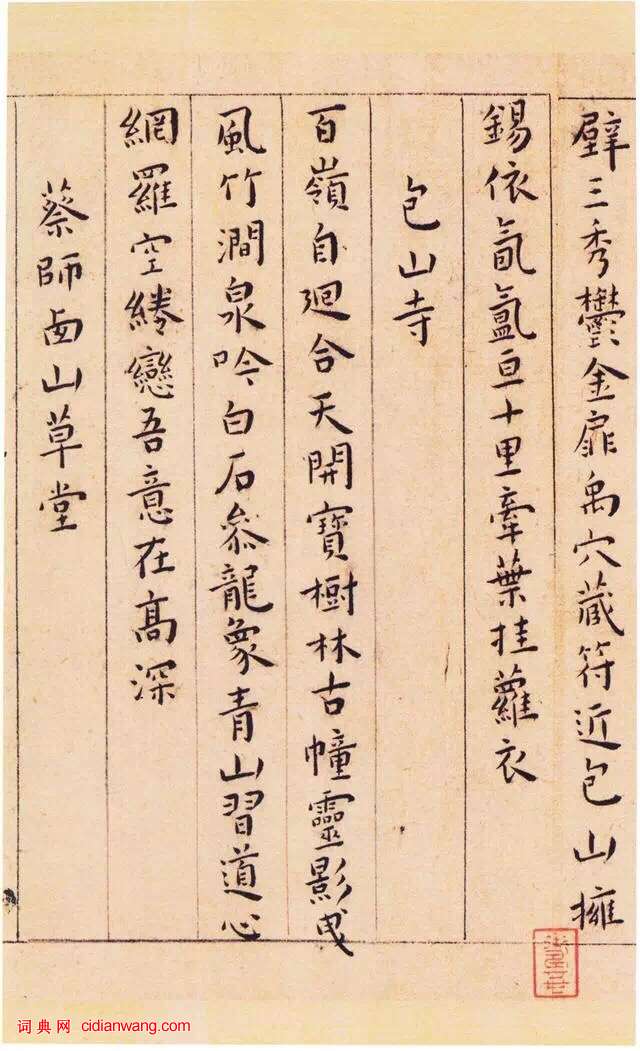 壁三秀鬱金扉禹穴藏符近包山擁
錫依氤氳亘十里牽葉挂蘿衣
包山寺
百嶺自迴合天開寶樹林古幢靈影曳
風竹澗泉吟白石參龍象青山習道心
網羅空綣戀吾意在高深
蔡師西山草堂
词典网 cidianwang.com